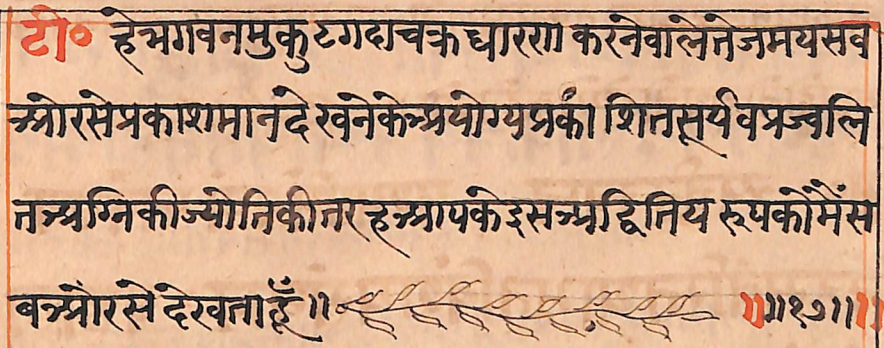 टी० हेभगवनमुकुटगदाचक्रधारणाकरनेवालेतेजमयसव
ओरसेप्रकाशमानदेखनेकेअयोग्यप्रकाशितसूर्यवप्रज्वलि
तअग्निकीज्योतिकीतरहआपकेइसअद्वितियरूपकोमैंस
बओरसेदेखताहूँ॥ ॥॥१७॥॥